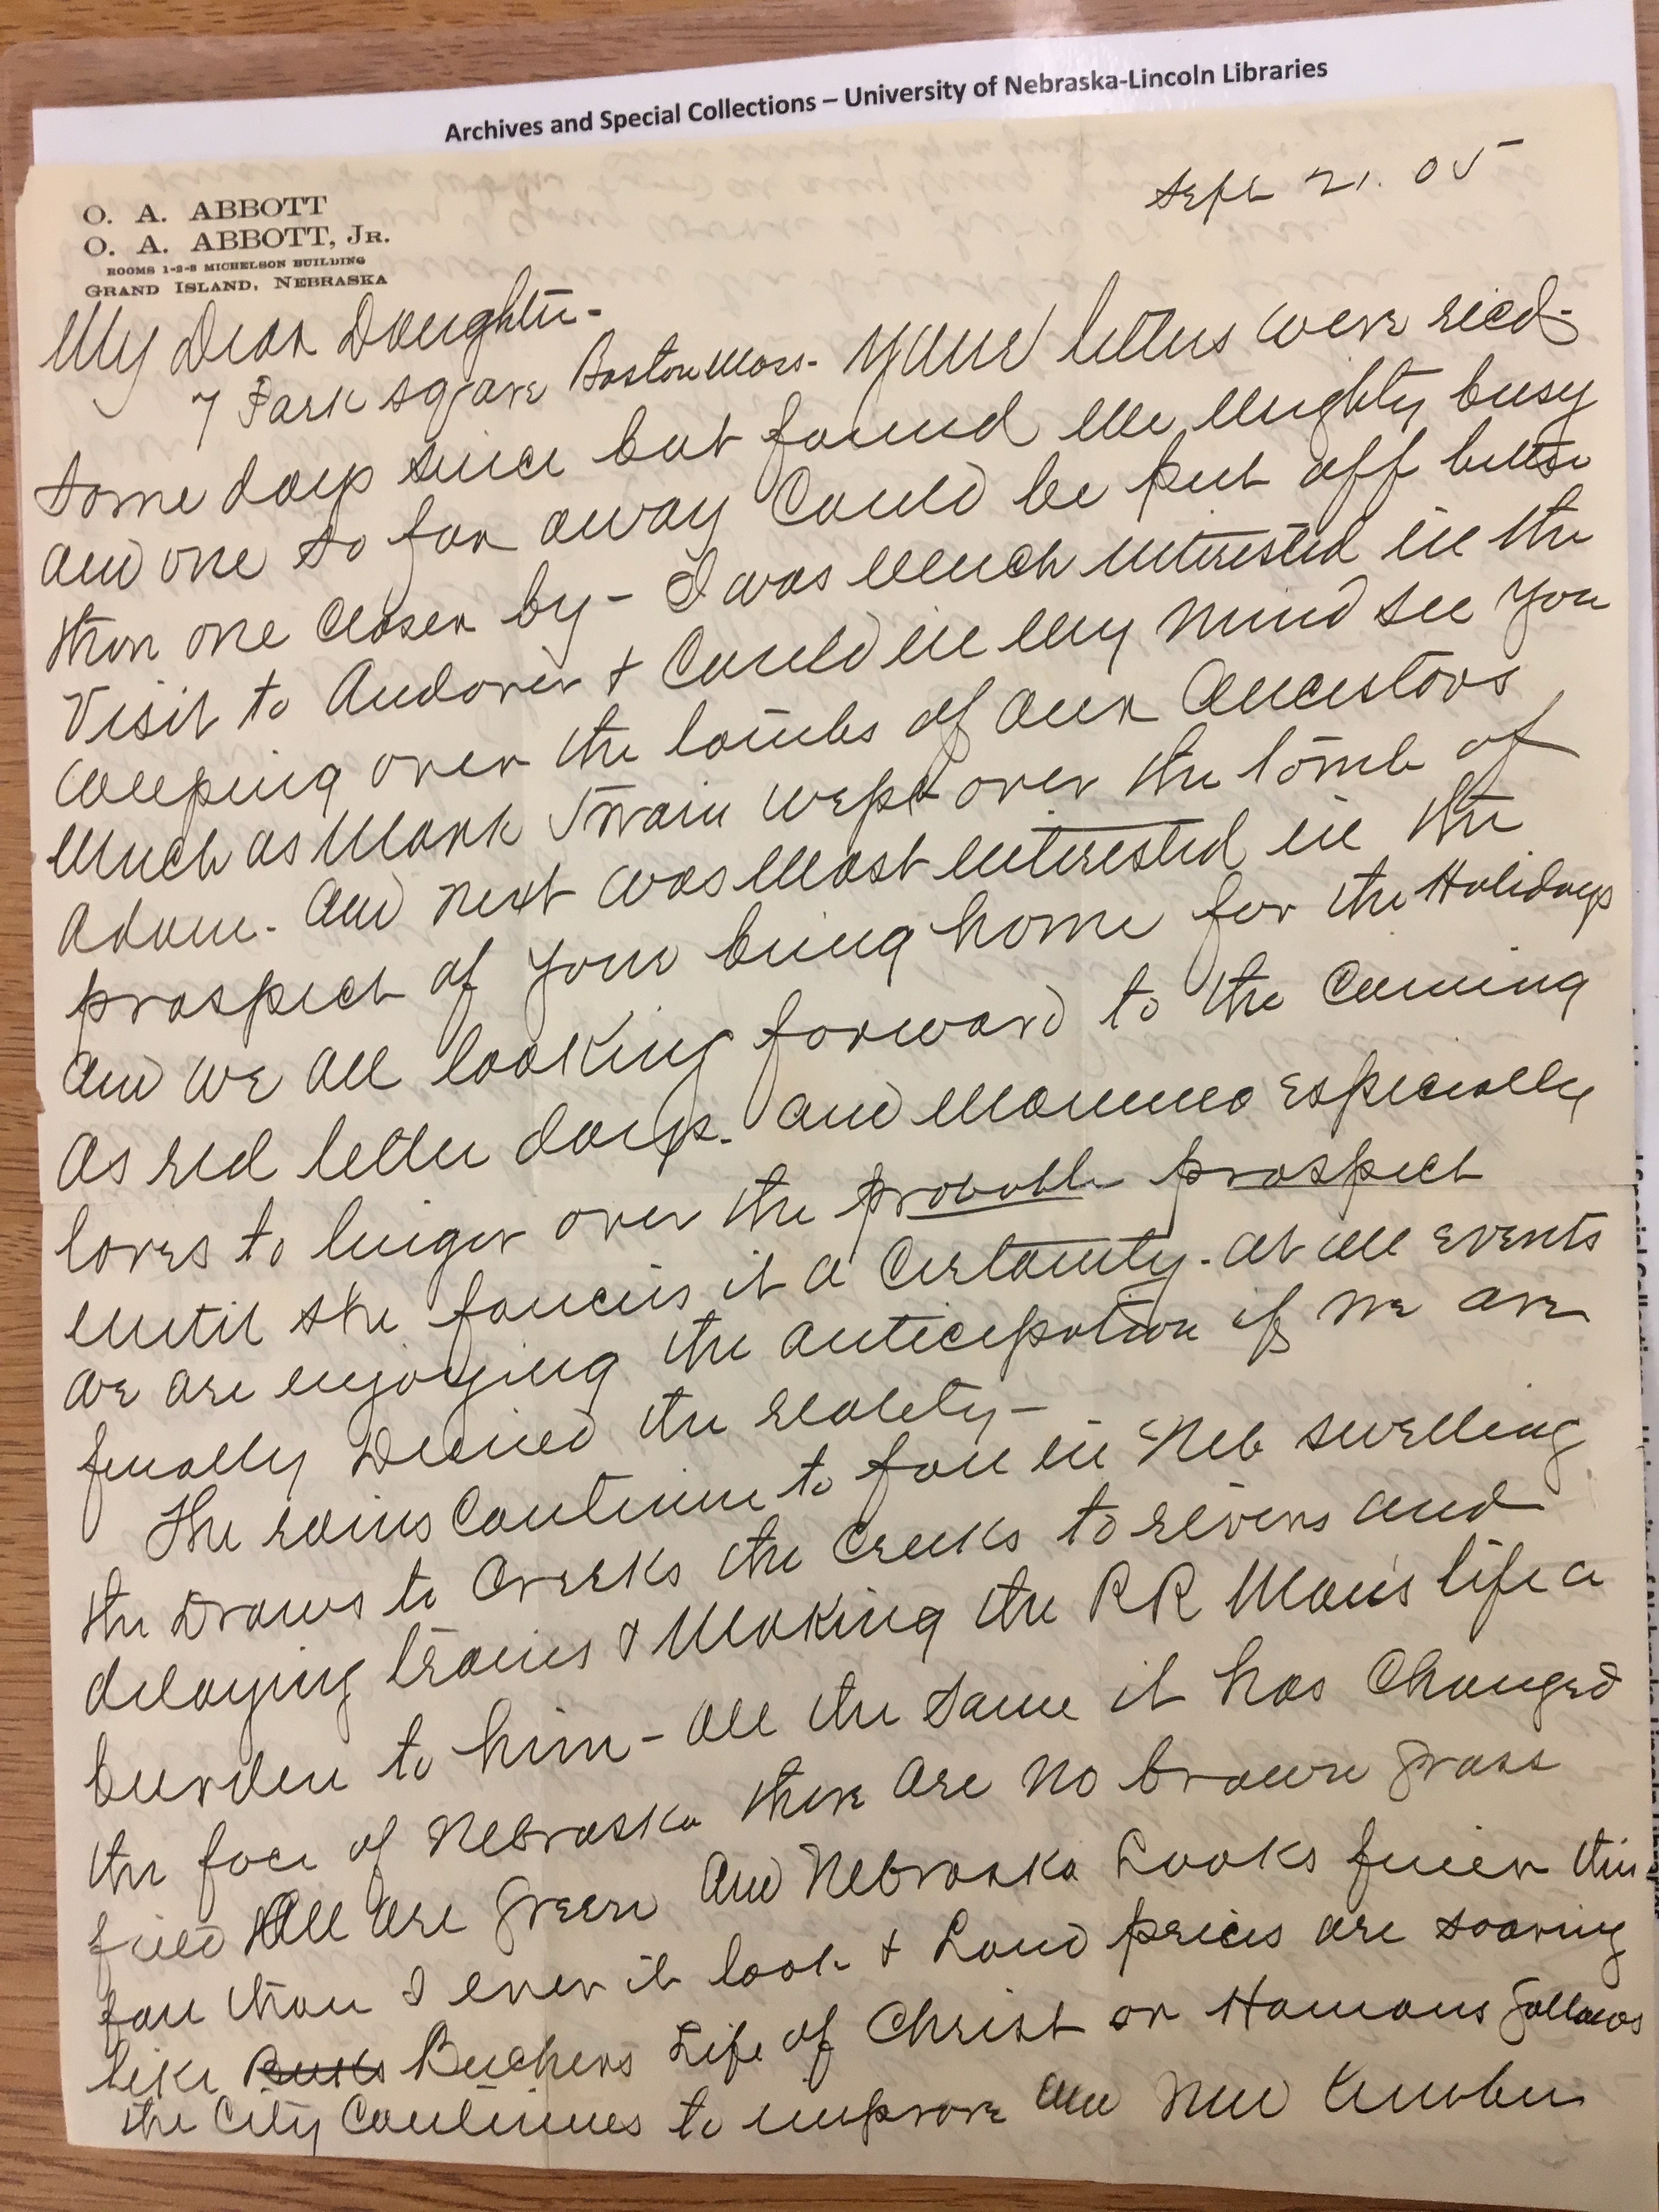 Archives and Special Collections – University of Nebraska-Lincoln Libraries
Sept 21. 05
O. A. ABBOTT
O. A. ABBOTT, JR.
ROOMS 1-2-3 MICHELSON BUILDING
GRAND ISLAND, NEBRASKA
My Dear Daughter-
7 Park Sqare Boston Mass- Your letters were recd-
some days since but found me mighty busy
and one so far away could be put off better
than one closer by- I was much interested in the
Visit to Andover & could in my mind see you
weeping over the tombs of our Ancestors
much as Mark Twain wept over the tomb of
Adam- And next was most interested in the
prospect of your being home for the Holidays
and we all looking forward to the coming
as red letter days- and Mamma especially
loves to linger over the probable prospect
until she fancies it a certainty- at all events
we are enjoying the anticipation if we are
finally Denied the reality-
The rains continue to fall in Neb swelling
the Draws to creeks the creeks to rivers and
delaying trains & making the RR Man's life a
burden to him- all the same it has changed
the face of Nebraska there are no brown grass
field All are green and Nebraska Looks finer this
fall than I ever it look & Land prices are soaring
like Buchers Life of Christ or Hamans Gallows
the City continues to improve and New